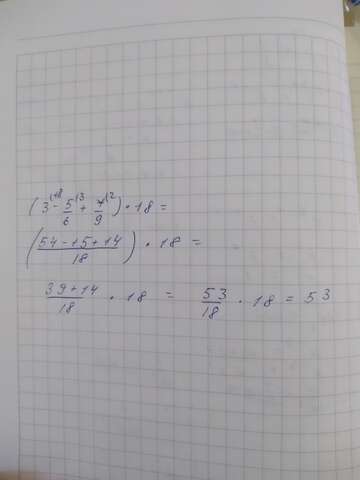 (3^(18 - 5/6^(3 + 7/9^(2) · 18 =
((54 - 15 + 14)/18) · 18 =
(39 + 14)/18 · 18 = 53/18 · 18 = 53